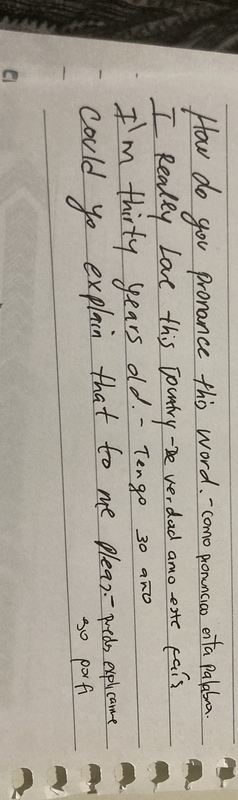 How do you pronance this word. - como pronuncias esta palabra.
I Really Love this country - De verdad amo este país
I'm thirty years old. - Tengo 30 año
Could yo explain that to me pleas. - puedes explicarme
so porfi